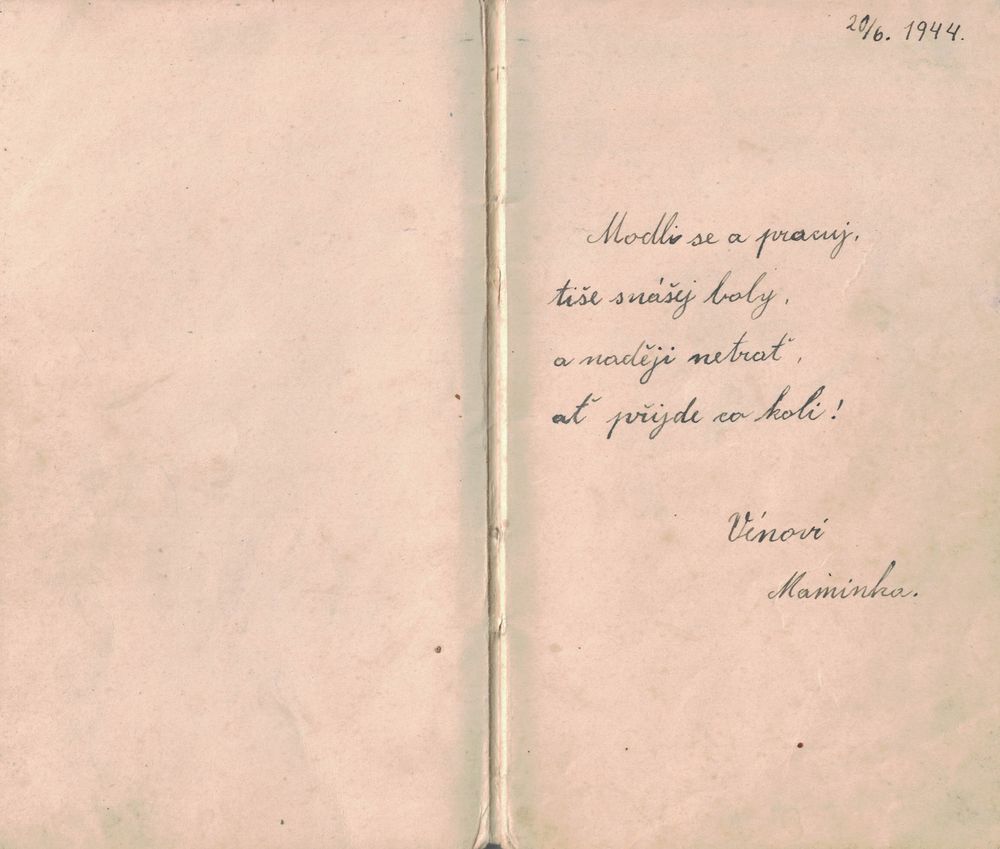 20/6. 1944.
Modli se a pracuj,
tiše snášej boly,
a naději netrať,
ať přijde co koli!
Vénovi
Maminka.